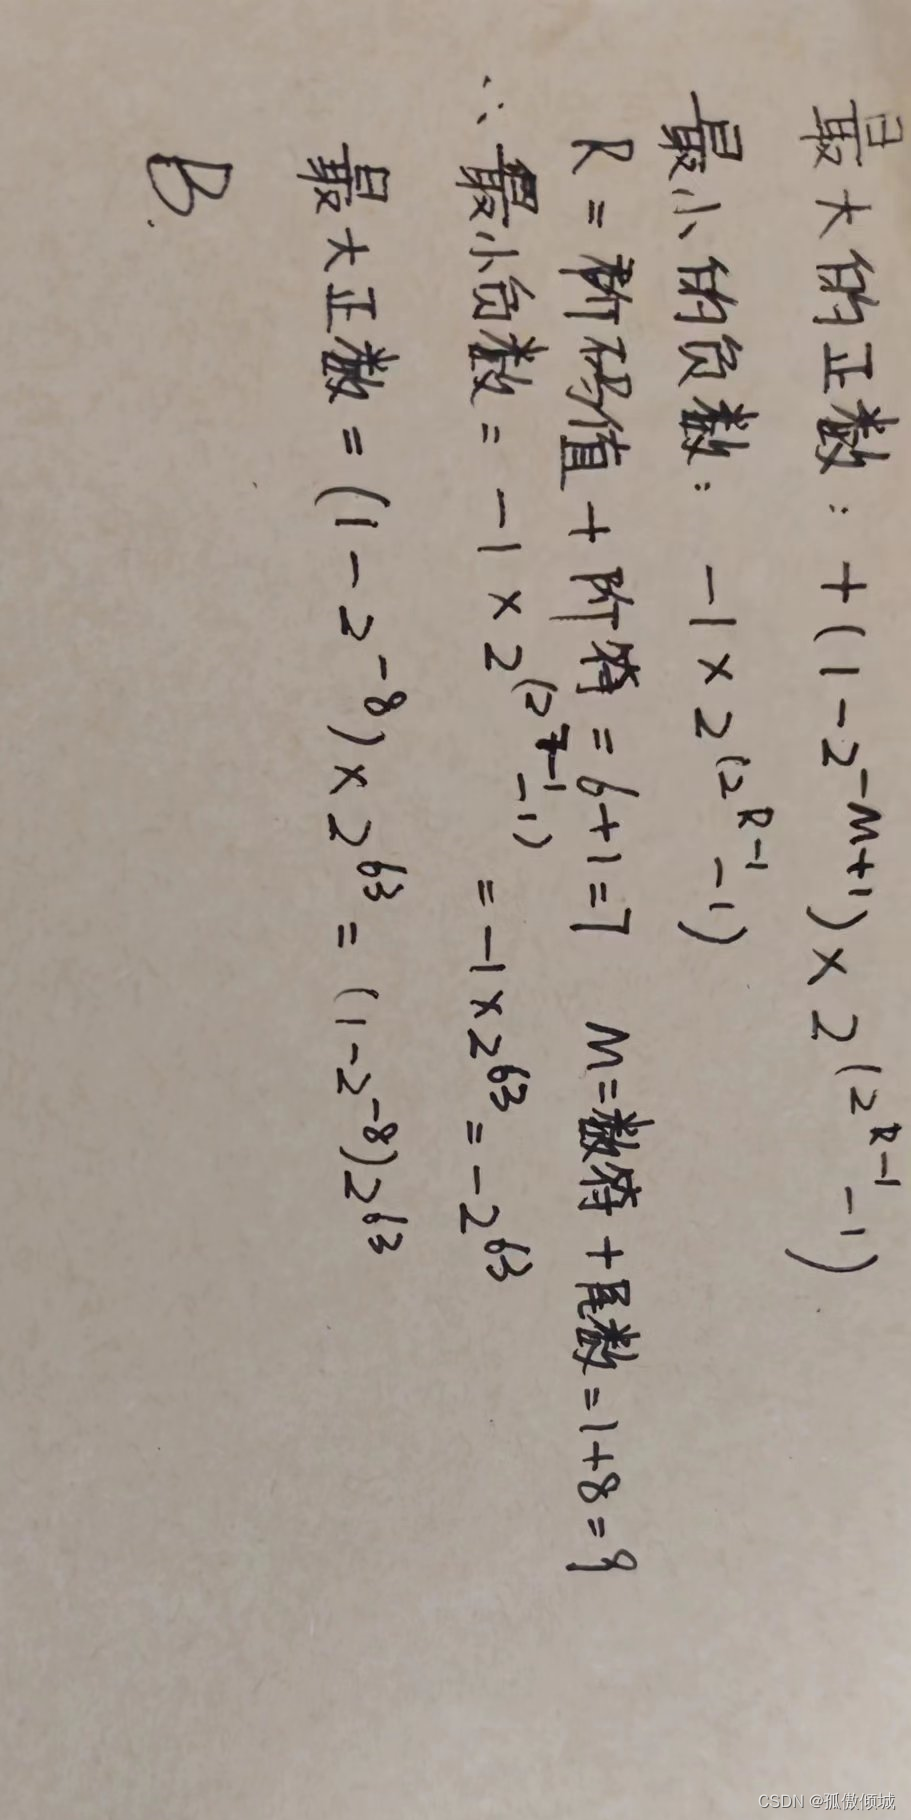 最大的正数：+(1-2^{-M+1})×2^{(2^{R-1}-1)}
最小的负数：-1×2^{(2^{R-1}-1)}
R=阶码值+阶符=6+1=7 M=数符+尾数=1+8=9
∴最小负数=-1×2^{(2^{7-1}-1)}=-1×2^{63}=-2^{63}
最大正数=(1-2^{-8})×2^{63}=(1-2^{-8})2^{63}
B.
CSDN @孤傲倾城